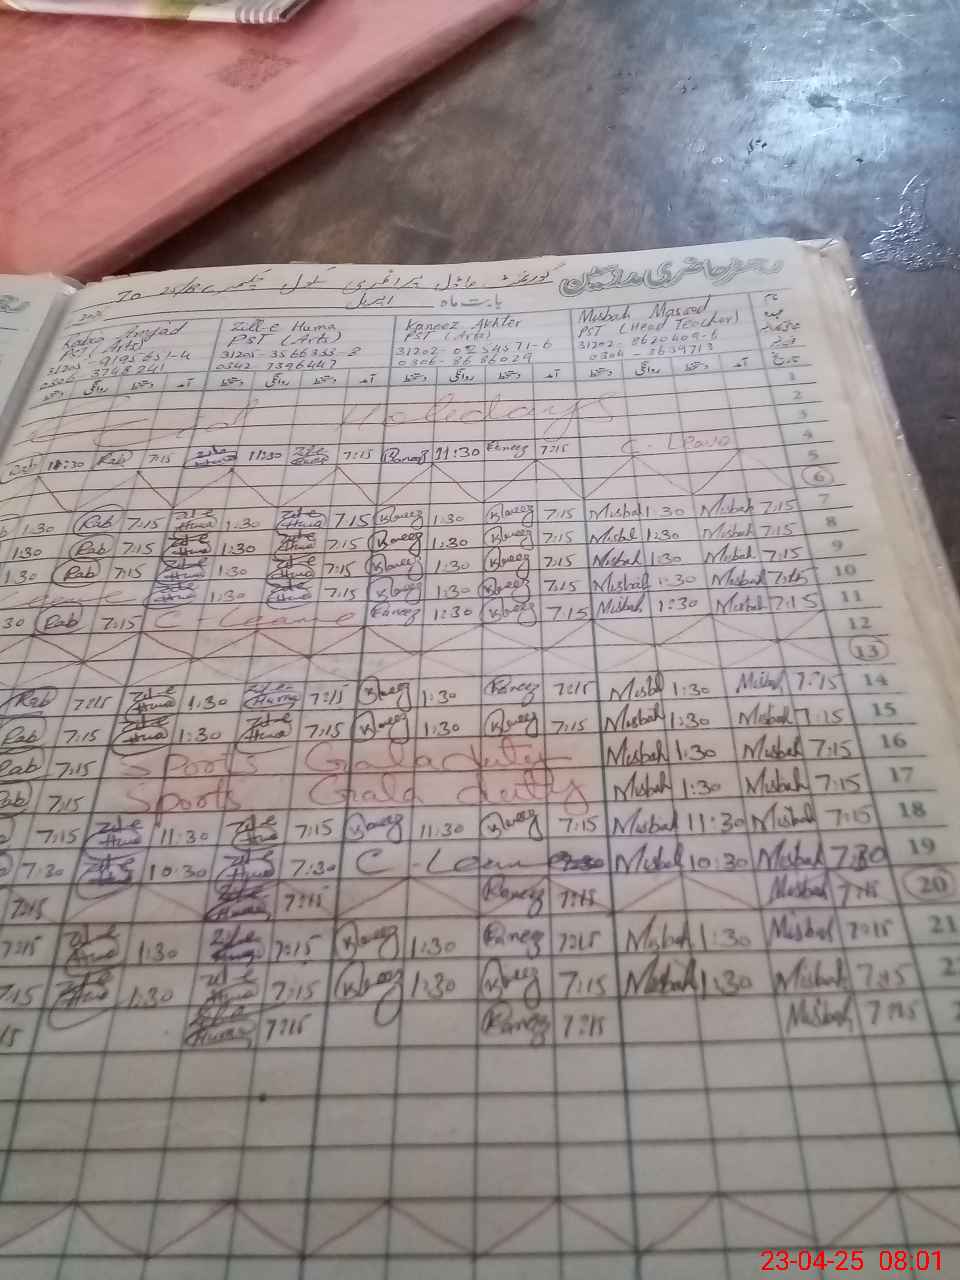 رجسٹر حاضری مدرسین
گورنمنٹ ماڈل پرائمری سکول
بابت ماہ اپریل
Misbah Masood
PST (Head Teacher)
31202-8620409-6
Kaneez Akhter
PST (Arts)
0306-8686029
Zill-e Huma
PST (Arts)
31203-3566333-8
0342-7396447
Amjad
PST (Arts)
1
2
Eid Holidays
3
4
Rab 11:30 Rab 7:15 Zill-e Huma 11:30 Zill-e Huma 7:15 Kaneez 11:30 Kaneez 7:15 C-Leave
5
6
1:30 Rab 7:15 Zill-e Huma 1:30 Zill-e Huma 7:15 Kaneez 1:30 Kaneez 7:15 Misbah 1:30 Misbah 7:15 7
1:30 Rab 7:15 Zill-e Huma 1:30 Zill-e Huma 7:15 Kaneez 1:30 Kaneez 7:15 Misbah 1:30 Misbah 7:15 8
1:30 Rab 7:15 Zill-e Huma 1:30 Zill-e Huma 7:15 Kaneez 1:30 Kaneez 7:15 Misbah 1:30 Misbah 7:15 9
Leave Zill-e Huma 1:30 Zill-e Huma 7:15 Kaneez 1:30 Kaneez 7:15 Misbah 1:30 Misbah 7:15 10
30 Rab 7:15 C-Leave Kaneez 1:30 Kaneez 7:15 Misbah 1:30 Misbah 7:15 11
12
13
Rab 7:15 Zill-e Huma 1:30 Zill-e Huma 7:15 Kaneez 1:30 Kaneez 7:15 Misbah 1:30 Misbah 7:15 14
Rab 7:15 Zill-e Huma 1:30 Zill-e Huma 7:15 Kaneez 1:30 Kaneez 7:15 Misbah 1:30 Misbah 7:15 15
Rab 7:15 Sports Gala duty Misbah 1:30 Misbah 7:15 16
Rab 7:15 Sports Gala duty Misbah 1:30 Misbah 7:15 17
7:15 Zill-e Huma 11:30 Zill-e Huma 7:15 Kaneez 11:30 Kaneez 7:15 Misbah 11:30 Misbah 7:15 18
7:30 Zill-e Huma 10:30 Zill-e Huma 7:30 C-Leave Misbah 10:30 Misbah 7:30 19
7:15 Zill-e Huma 7:15 Kaneez 7:15 Misbah 7:15 20
7:15 Zill-e Huma 1:30 Zill-e Huma 7:15 Kaneez 1:30 Kaneez 7:15 Misbah 1:30 Misbah 7:15 21
7:15 Zill-e Huma 1:30 Zill-e Huma 7:15 Kaneez 1:30 Kaneez 7:15 Misbah 1:30 Misbah 7:15
15 Zill-e Huma 7:15 Kaneez 7:15 Misbah 7:15
23-04-25 08:01